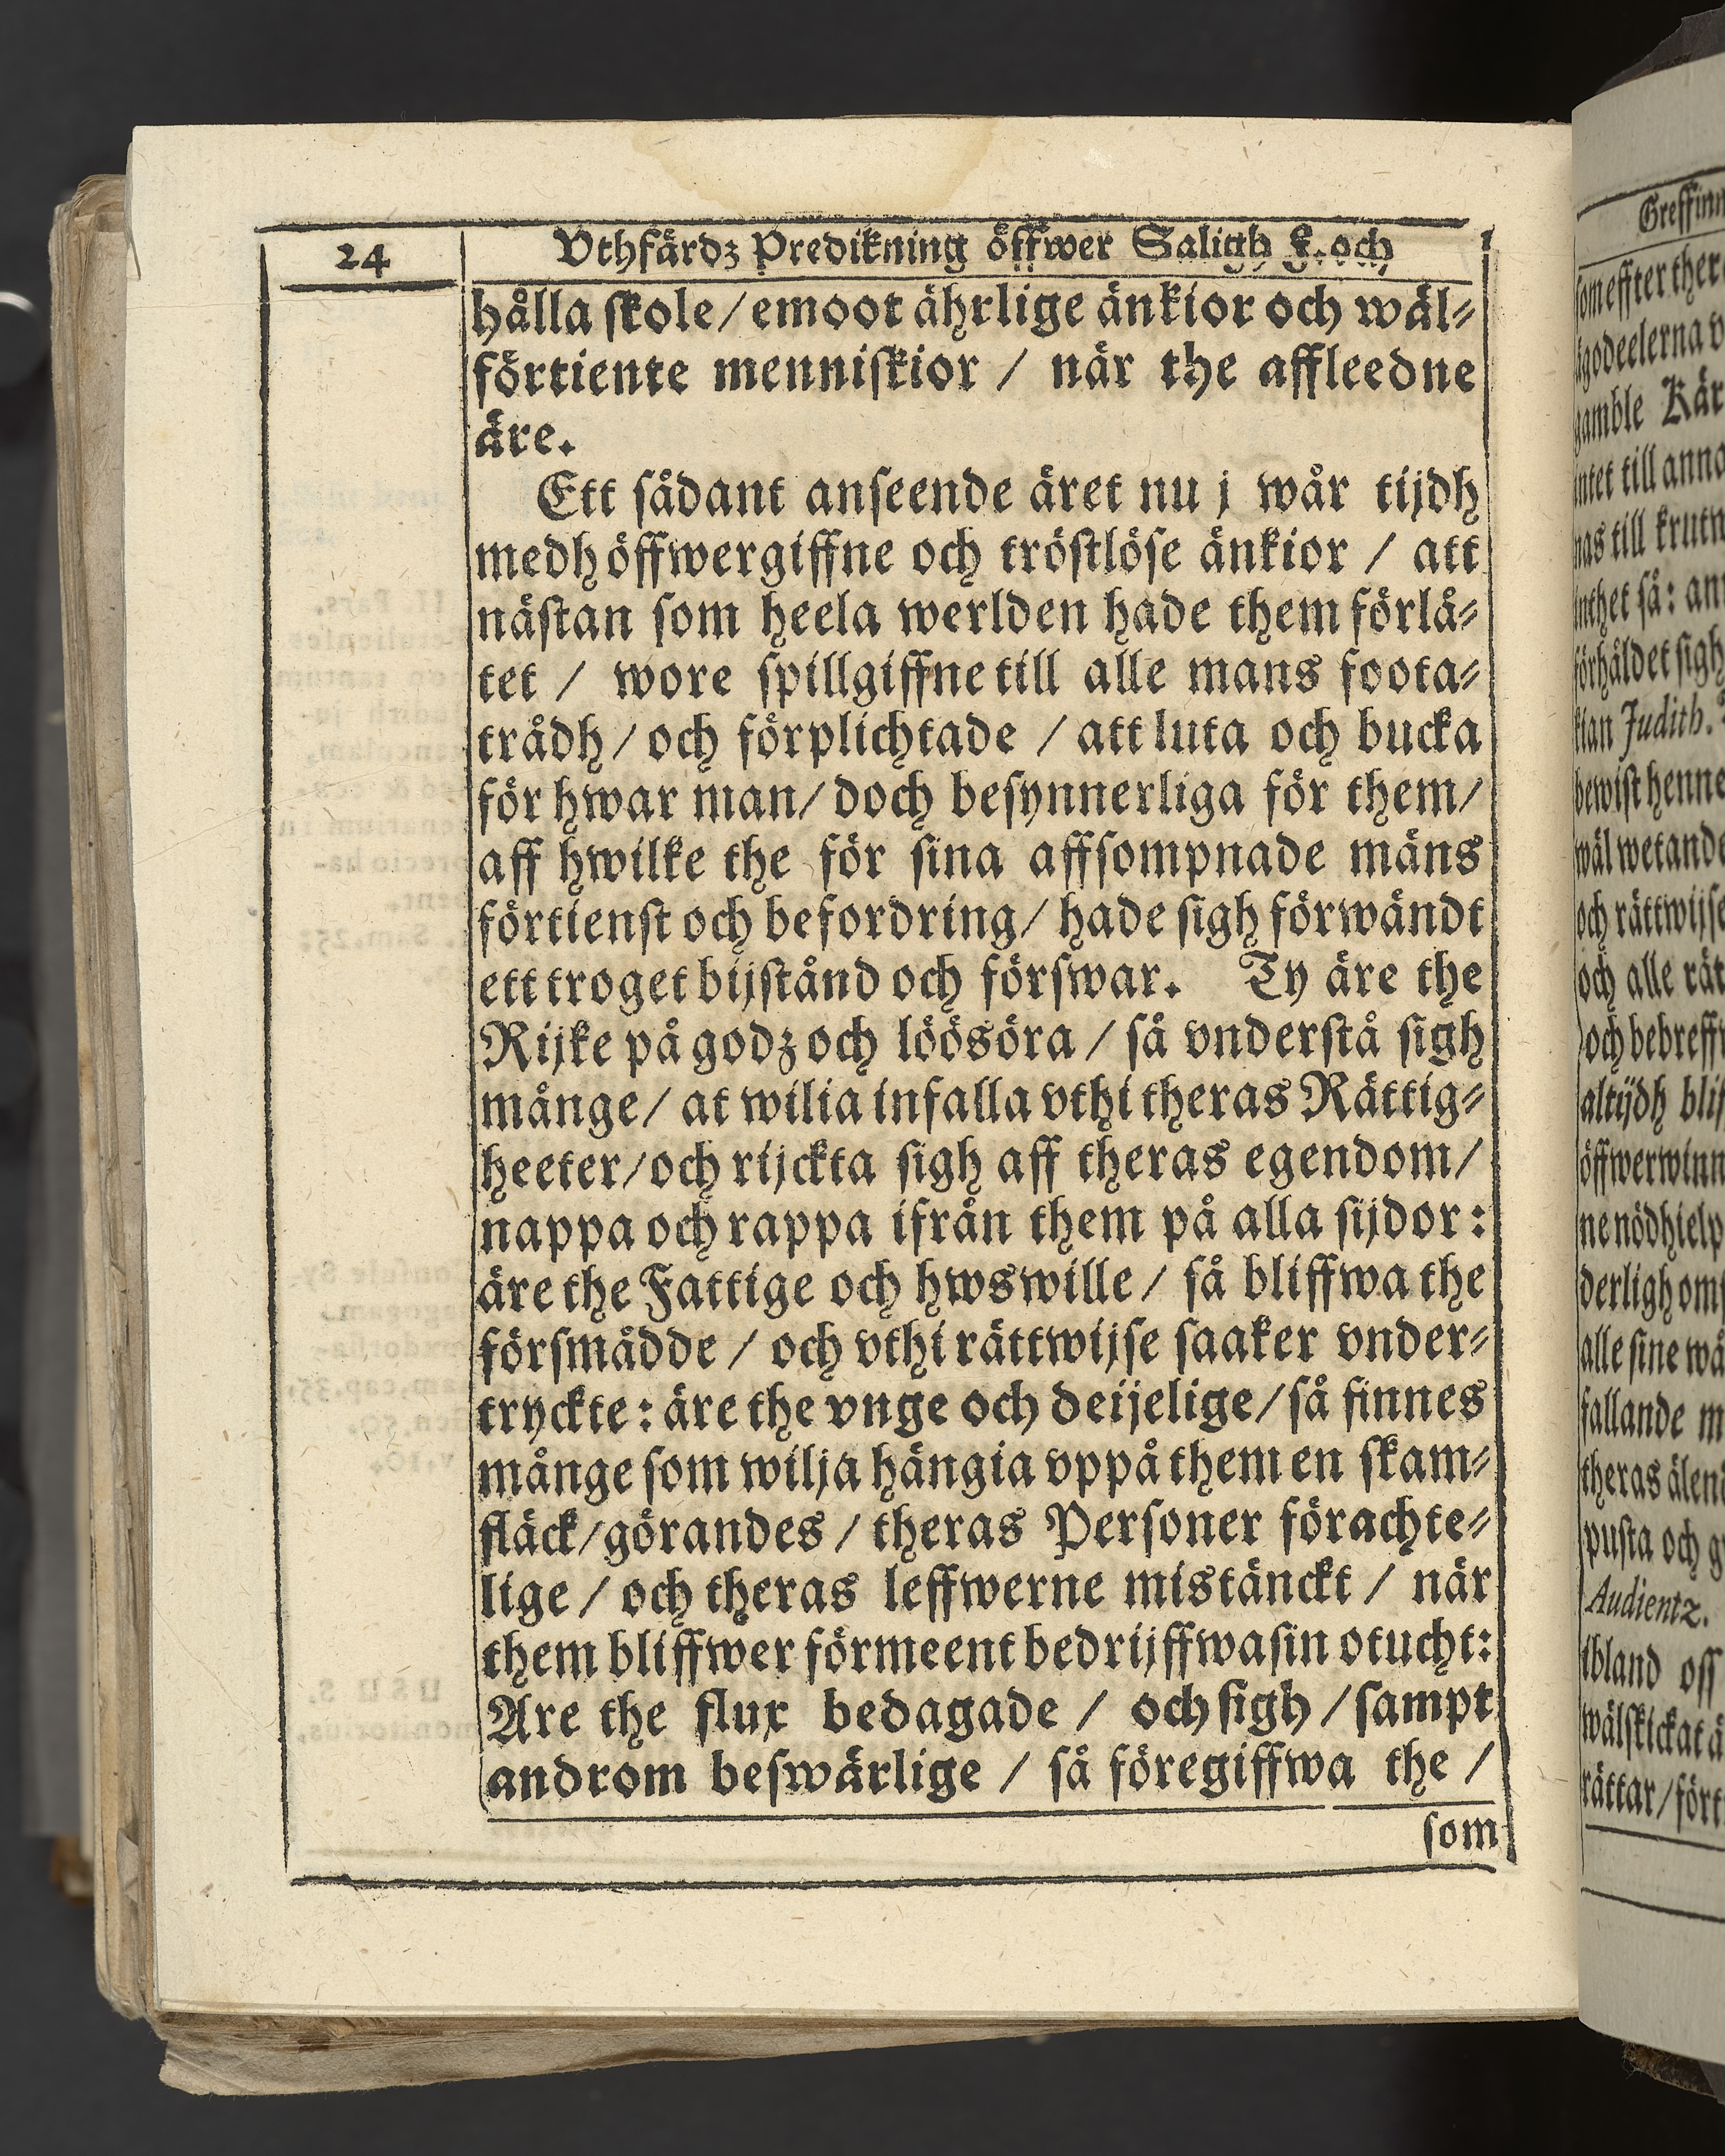 24
Vthfärdz Predikning öffwer Saligh F. och
hålla skole/ emoot ährlige änkior och wäl-
förtiente menniskior / när the affleedne
äre.
Ett sådant anseende äret nu j wår tijdh
medh öffwergiffne och tröstlöse änkior / att
nästan som heela werlden hade them förlå-
tet / wore spillgiffne till alle mans foota-
trådh / och förplichtade / att luta och bucka
för hwar man/ doch besynnerliga för them/
aff hwilke the för sina affsompnade mäns
förtienst och befordring/ hade sigh förwändt
ett troget bijstånd och förswar. Ty äre the
Rijke på godz och löösöra / så vnderstå sigh
månge/ at wilia infalla vthi theras Rättig-
heeter/ och rijckta sigh aff theras egendom/
nappa och rappa ifrån them på alla sijdor:
äre the Fattige och hwswille / så bliffwa the
försmådde / och vthi rättwijse saaker vnder-
tryckte: äre the vnge och deijelige/ så finnes
månge som wilja hängia vppå them en skam-
fläck/ görandes / theras Personer förachte-
lige / och theras leffwerne misstänckt / när
them bliffwer förmeent bedrijffwa sin otucht:
Äre the flux bedagade / och sigh / sampt
androm beswärlige / så föregiffwa the /
som
Greffinn
som effter ther
gamble Kär
intet till anna
nas till krutw
inthet så: an
förhåldet sigh
kian Judith.
bewist henne
wäl wetande
och rättwijse
och alle rät
altijdh blif
öffwerwinn
ne nödhielp
alle sine wä
fallande m
theras älend
pusta och g
Audientz.
ibland oss
wälskickat ä
rättar/ fört